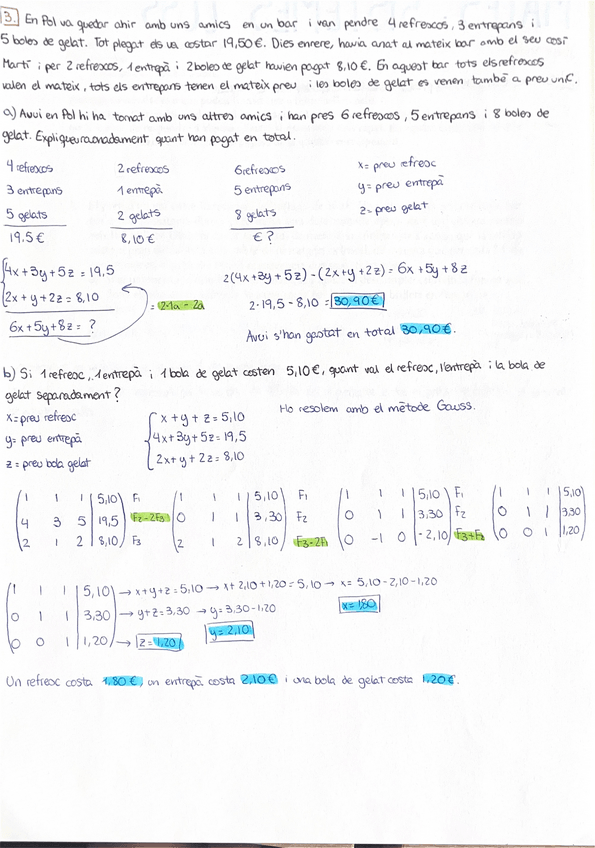 3. En Pol va quedar ahir amb uns amics en un bar i van pendre 4 refrescos, 3 entrepans i
5 boles de gelat. Tot plegat els va costar 19,50€. Dies enrere, havia anat al mateix bar amb el seu cosí
Martí i per 2 refrescos, 1 entrepà i 2 boles de gelat havien pagat 8,10€. En aquest bar tots els refrescos
valen el mateix, tots els entrepans tenen el mateix preu i les boles de gelat es venen també a preu únic.
a) Avui en Pol hi ha tornat amb uns altres amics i han pres 6 refrescos, 5 entrepans i 8 boles de
gelat. Explique raonadament quant han pagat en total.
4 refrescos 2 refrescos 6 refrescos x= preu refresc
3 entrepans 1 entrepà 5 entrepans y= preu entrepà
5 gelats 2 gelats 8 gelats z= preu gelat
19.5€ 8,10€ €?
4x+3y+5z=19,5 2(4x+3y+5z)-(2x+y+2z)=6x+5y+8z
2x+y+2z=8,10
= 2·1a-2a 2·19,5-8,10=30,90€
6x+5y+8z=?
Avui s'han gastat en total 30,90€.
b) Si 1 refresc, 1 entrepà i 1 bola de gelat costen 5,10€, quant val el refresc, l'entrepà i la bola de
gelat separadament?
x=preu refresc x+y+z=5,10 Ho resolem amb el mètode Gauss.
y= preu entrepà 4x+3y+5z=19,5
z= preu bola gelat 2x+y+2z=8,10
1 1 1 5,10 F1 1 1 1 5,10 F1 1 1 1 5,10 F1 1 1 1 5,10
4 3 5 19,5 F2-2F3 0 1 1 3,30 F2 0 1 1 3,30 F2 0 1 1 3,30
2 1 2 8,10 F3 2 1 2 8,10 F3-2F1 0 -1 0 -2,10 F3+F2 0 0 1 1,20
1 1 1 5,10 → x+y+z=5,10 → x+2,10+1,20=5,10 → x= 5,10-2,10-1,20
0 1 1 3,30 → y+z=3,30 → y=3,30-1,20 x=1,80
0 0 1 1,20 → z=1,20 y=2,10
Un refresc costa 1,80€, un entrepà costa 2,10€ i una bola de gelat costa 1,20€.